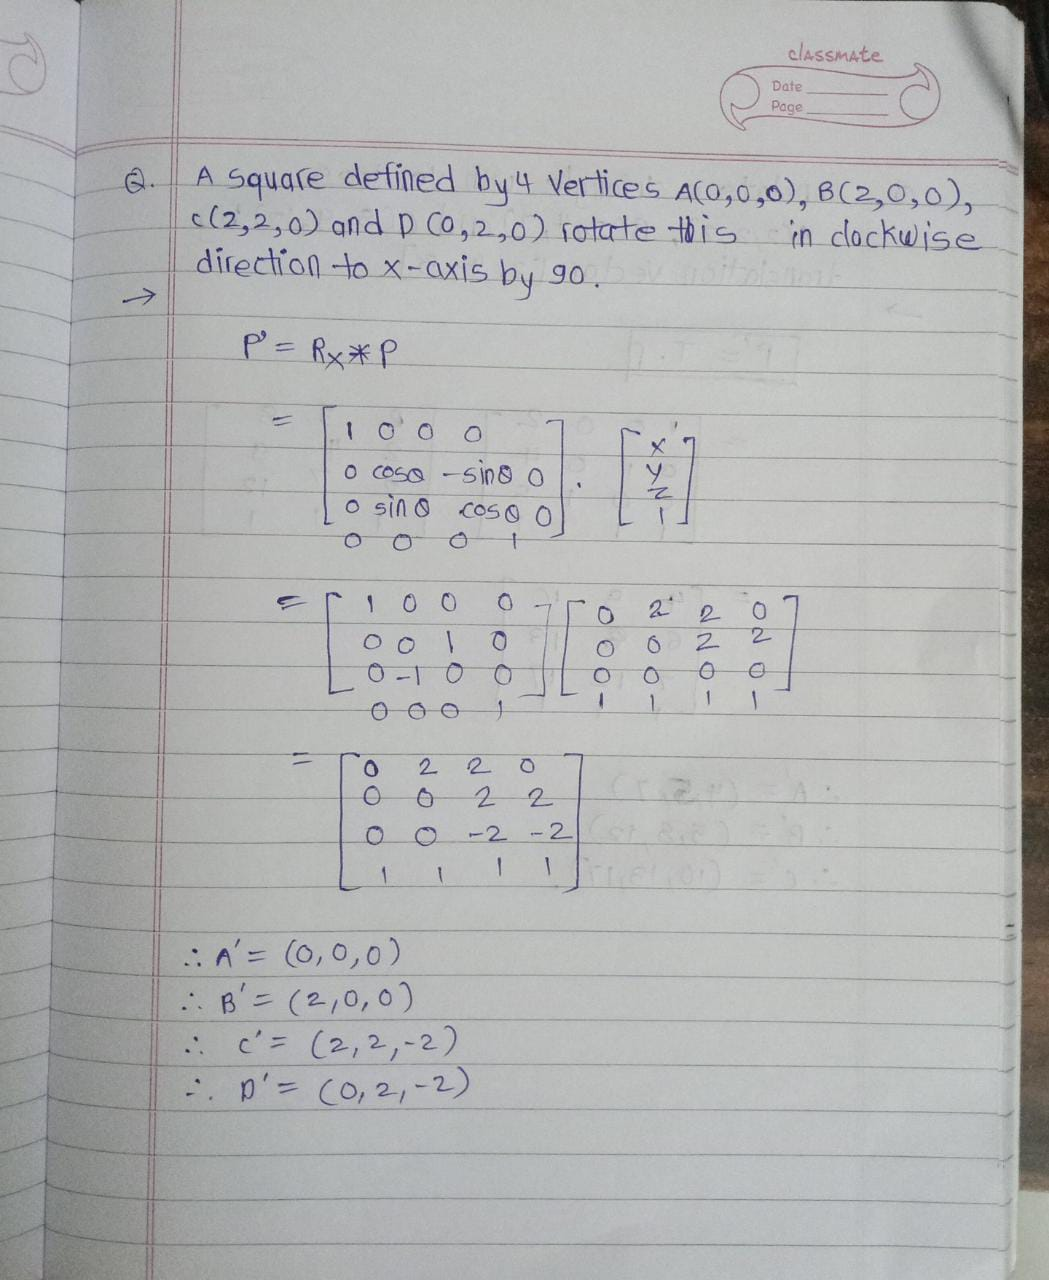 classmate
Date
Page
Q. A square defined by 4 vertices A(0,0,0), B(2,0,0),
C(2,2,0) and D (0,2,0) rotate this in clockwise
direction to x-axis by 90.
→
P' = Rx * P
= [ 1 0 0 0 ] . [ x ]
0 cosθ -sinθ 0 y
0 sinθ cosθ 0 z
0 0 0 1 1
= [ 1 0 0 0 ] [ 0 2 2 0 ]
0 0 1 0 0 0 2 2
0 -1 0 0 0 0 0 0
0 0 0 1 1 1 1 1
= [ 0 2 2 0 ]
0 0 2 2
0 0 -2 -2
1 1 1 1
∴ A' = (0,0,0)
∴ B' = (2,0,0)
∴ C' = (2,2,-2)
∴ D' = (0,2,-2)